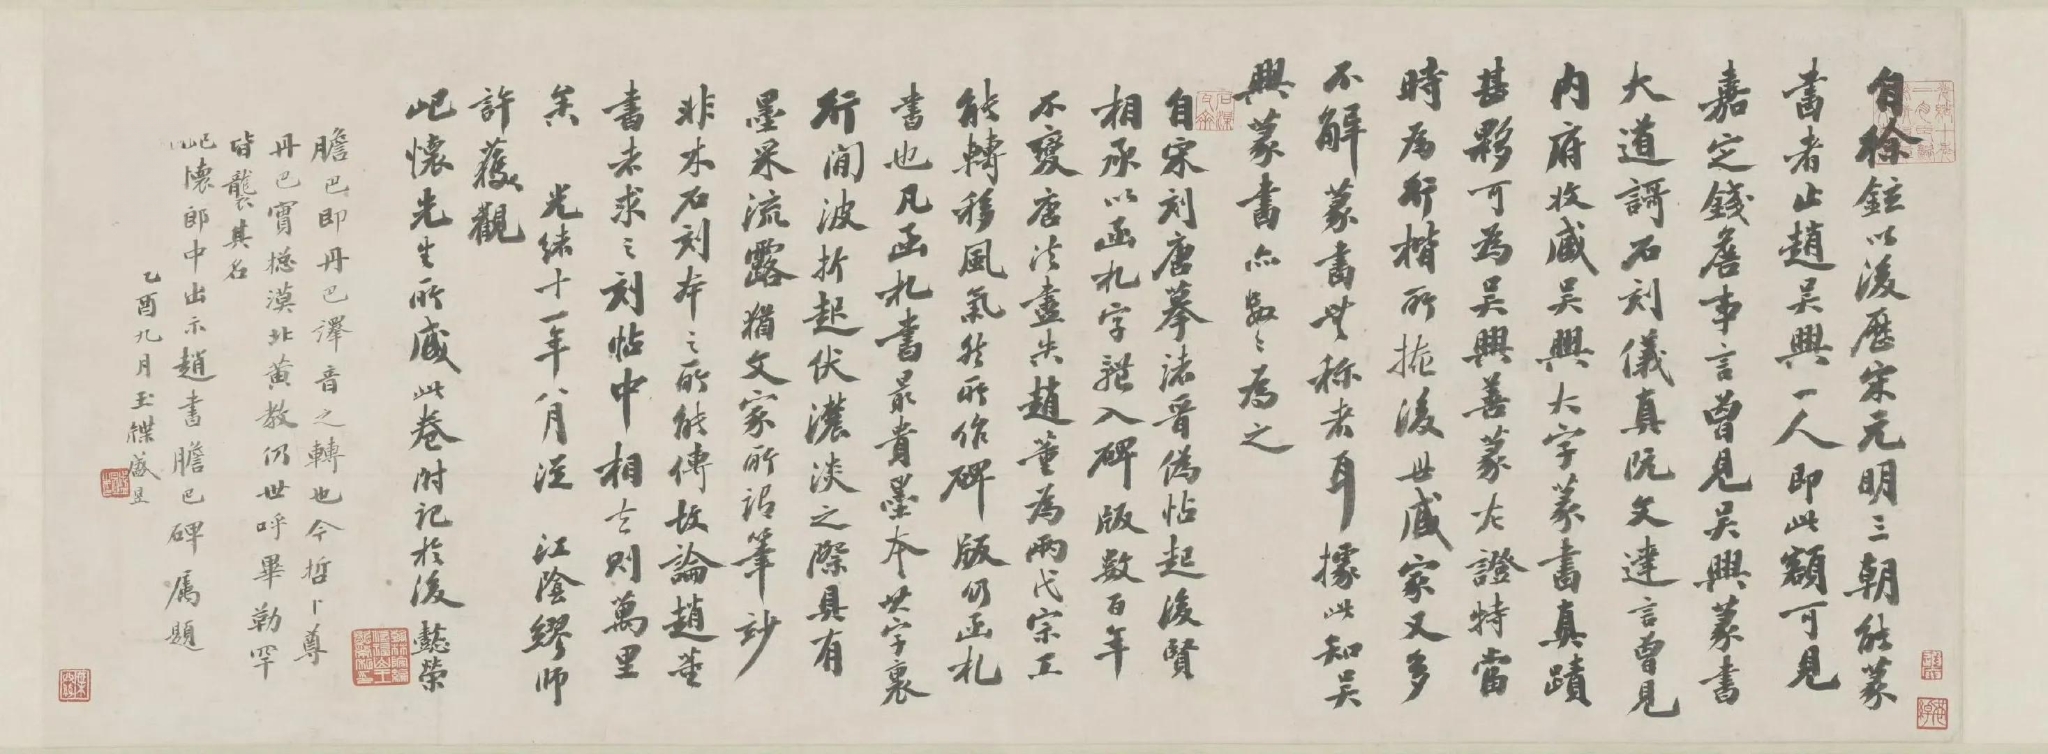 自徐鉉以後歷宋元明三朝能篆
書者止趙吳興一人即此額可見
嘉定錢詹事言曾見吳興篆書
大道謌石刻儀真阮文達言曾見
內府收藏吳興大字篆書真蹟
甚夥可為吳興善篆左證特當
時為行楷所掩後世藏家又多
不解篆書無称者耳據此知吳
興篆書亦數數為之
自宋刻唐摹諸晉偽帖起後賢
相承以函札字體入碑版數百年
不變唐法盡失趙董為兩代宗工
能轉移風氣然所作碑版仍函札
書也凡函札書最貴墨本以字裏
行間波折起伏濃淡之際具有
墨采流露猶文家所謂筆妙
非木石刻本之所能傳故論趙董
書者求之刻帖中相去則萬里
矣 光緒十一年八月從 江陰繆師
許獲觀
屺懷先生所藏此卷附記於後 懿榮
膽巴即丹巴譯音之轉也今哲卜尊
丹巴實揔漠北黃教仍世呼畢勒罕
皆襲其名
屺懷郎中出示趙書膽巴碑屬題
乙酉九月玉牒盛昱